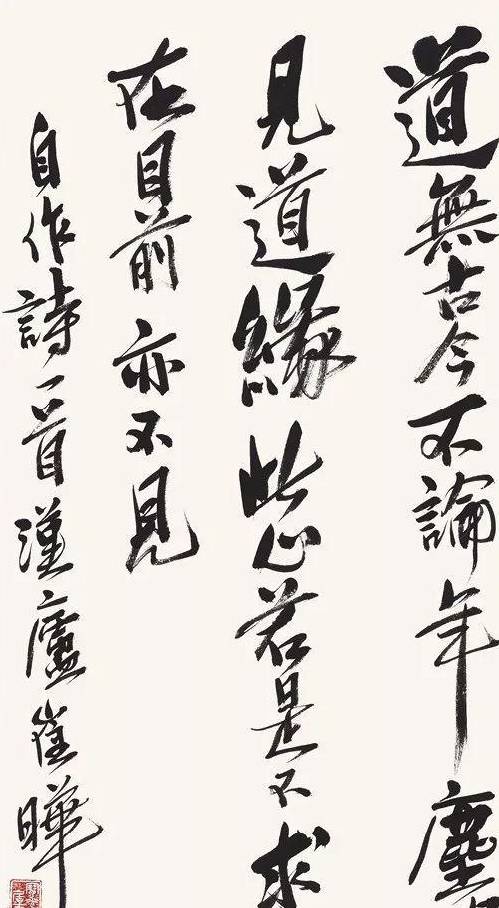 道無古今不論年塵
見道緣此心若是不求
在目前亦不見
自作詩一首漢廬崔曄